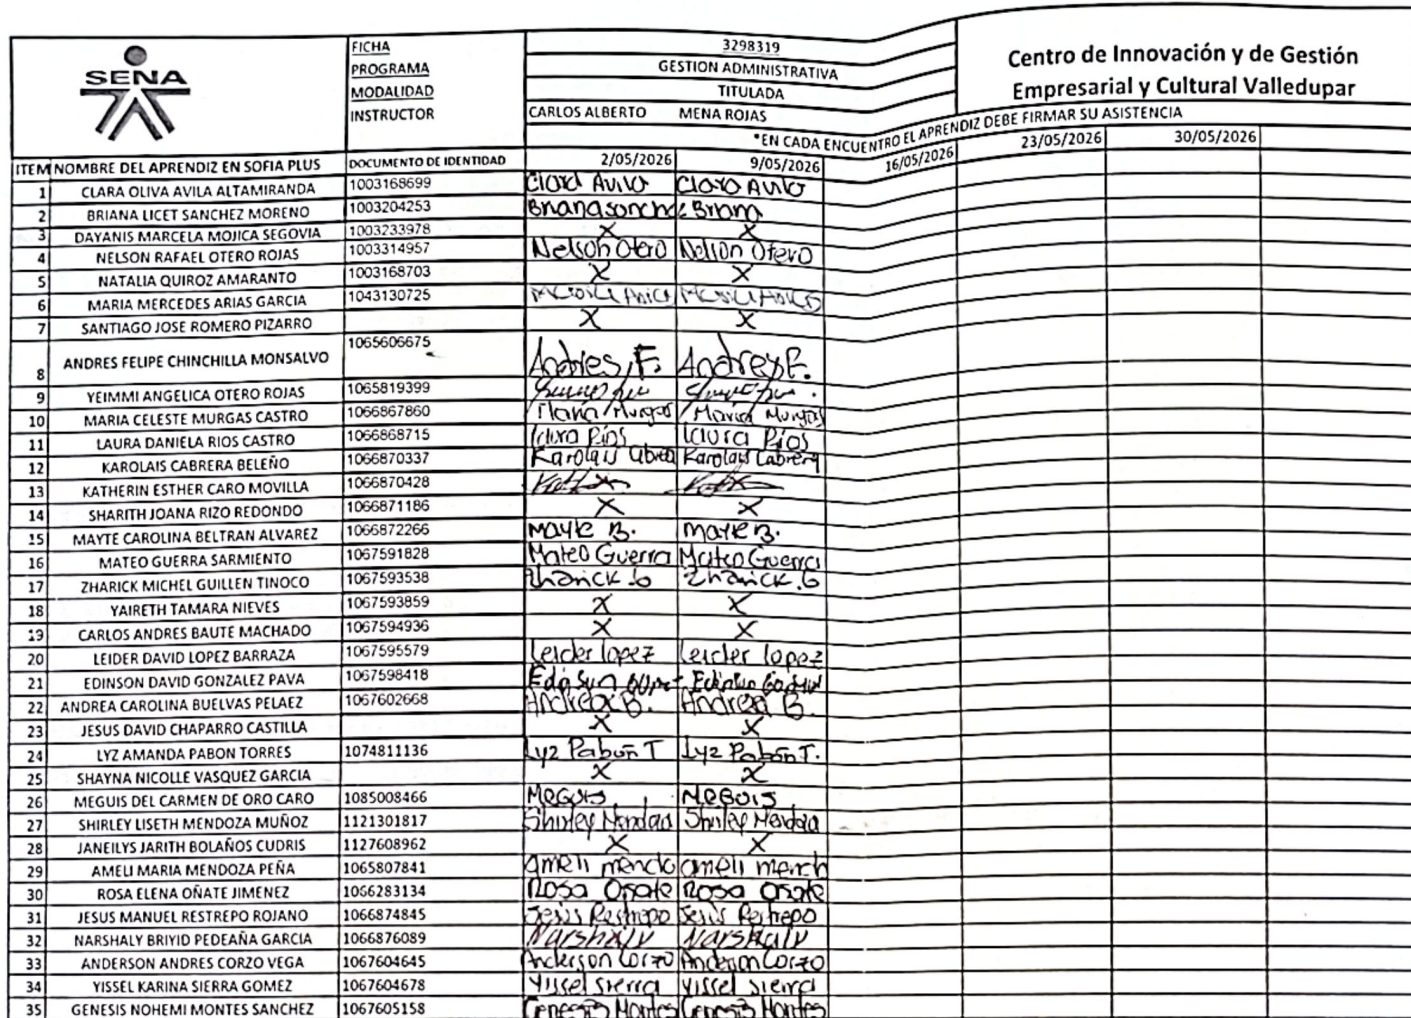 SENA
FICHA 3298319
PROGRAMA GESTION ADMINISTRATIVA
MODALIDAD TITULADA
INSTRUCTOR CARLOS ALBERTO MENA ROJAS
Centro de Innovación y de Gestión
Empresarial y Cultural Valledupar
*EN CADA ENCUENTRO EL APRENDIZ DEBE FIRMAR SU ASISTENCIA
ITEM NOMBRE DEL APRENDIZ EN SOFIA PLUS DOCUMENTO DE IDENTIDAD 2/05/2026 9/05/2026 16/05/2026 23/05/2026 30/05/2026
1 CLARA OLIVA AVILA ALTAMIRANDA 1003168699 Clara Avila Clara Avila
2 BRIANA LICET SANCHEZ MORENO 1003204253 Briana sanche Briana
3 DAYANIS MARCELA MOJICA SEGOVIA 1003233978 X X
4 NELSON RAFAEL OTERO ROJAS 1003314957 Nelson Otero Nelson Otero
5 NATALIA QUIROZ AMARANTO 1003168703 X X
6 MARIA MERCEDES ARIAS GARCIA 1043130725
7 SANTIAGO JOSE ROMERO PIZARRO X X
8 ANDRES FELIPE CHINCHILLA MONSALVO 1065606675 Andres F. Andres F.
9 YEIMMI ANGELICA OTERO ROJAS 1065819399
10 MARIA CELESTE MURGAS CASTRO 1066867860 Maria Murgas Maria Murgas
11 LAURA DANIELA RIOS CASTRO 1066868715 laura Ríos laura Ríos
12 KAROLAIS CABRERA BELEÑO 1066870337 Karolais Cabrera Karolais Cabrera
13 KATHERIN ESTHER CARO MOVILLA 1066870428
14 SHARITH JOANA RIZO REDONDO 1066871186 X X
15 MAYTE CAROLINA BELTRAN ALVAREZ 1066872266 Mayte B. mayte B.
16 MATEO GUERRA SARMIENTO 1067591828 Mateo Guerra Mateo Guerra
17 ZHARICK MICHEL GUILLEN TINOCO 1067593538 Zharick .G Zharick .G
18 YAIRETH TAMARA NIEVES 1067593859 X X
19 CARLOS ANDRES BAUTE MACHADO 1067594936 X X
20 LEIDER DAVID LOPEZ BARRAZA 1067595579 Leider lopez Leider lopez
21 EDINSON DAVID GONZALEZ PAVA 1067598418
22 ANDREA CAROLINA BUELVAS PELAEZ 1067602668 Andrea B. Andrea B.
23 JESUS DAVID CHAPARRO CASTILLA X X
24 LYZ AMANDA PABON TORRES 1074811136 Lyz Pabón T Lyz Pabón T.
25 SHAYNA NICOLLE VASQUEZ GARCIA X X
26 MEGUIS DEL CARMEN DE ORO CARO 1085008466 Meguis Meguis
27 SHIRLEY LISETH MENDOZA MUÑOZ 1121301817 Shirley Mendoza Shirley Mendoza
28 JANEILYS JARITH BOLAÑOS CUDRIS 1127608962 X X
29 AMELI MARIA MENDOZA PEÑA 1065807841 ameli mendo ameli
30 ROSA ELENA OÑATE JIMENEZ 1066283134 Rosa Oñate Rosa Oñate
31 JESUS MANUEL RESTREPO ROJANO 1066874845 Jesús Restrepo Jesús Restrepo
32 NARSHALY BRIYID PEDEAÑA GARCIA 1066876089 Narshaly Narshaly
33 ANDERSON ANDRES CORZO VEGA 1067604645 Anderson Corzo Anderson Corzo
34 YISSEL KARINA SIERRA GOMEZ 1067604678 Yissel sierra Yissel sierra
35 GENESIS NOHEMI MONTES SANCHEZ 1067605158 Genesis Montes Genesis Montes